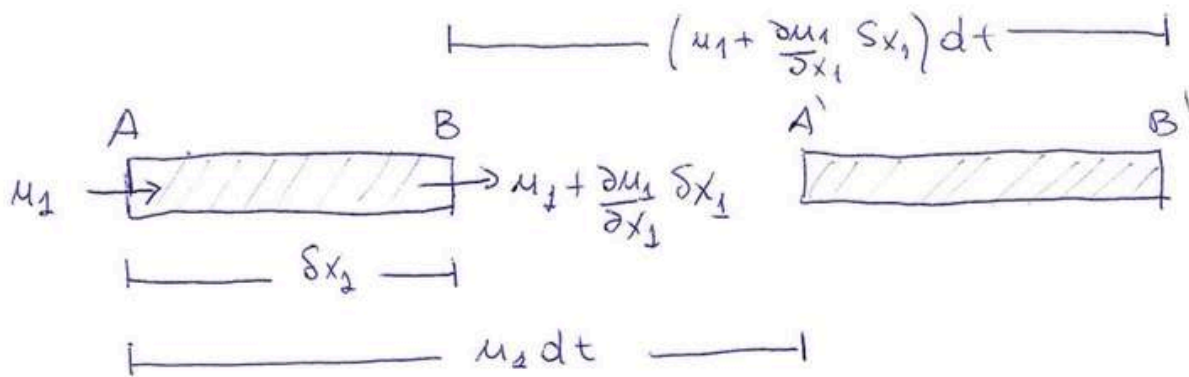 (u₁ + ∂u₁/δx₁ δx₁) dt
A B A' B'
u₁ u₁ + ∂u₁/∂x₁ δx₁
δx₁
u₁ dt